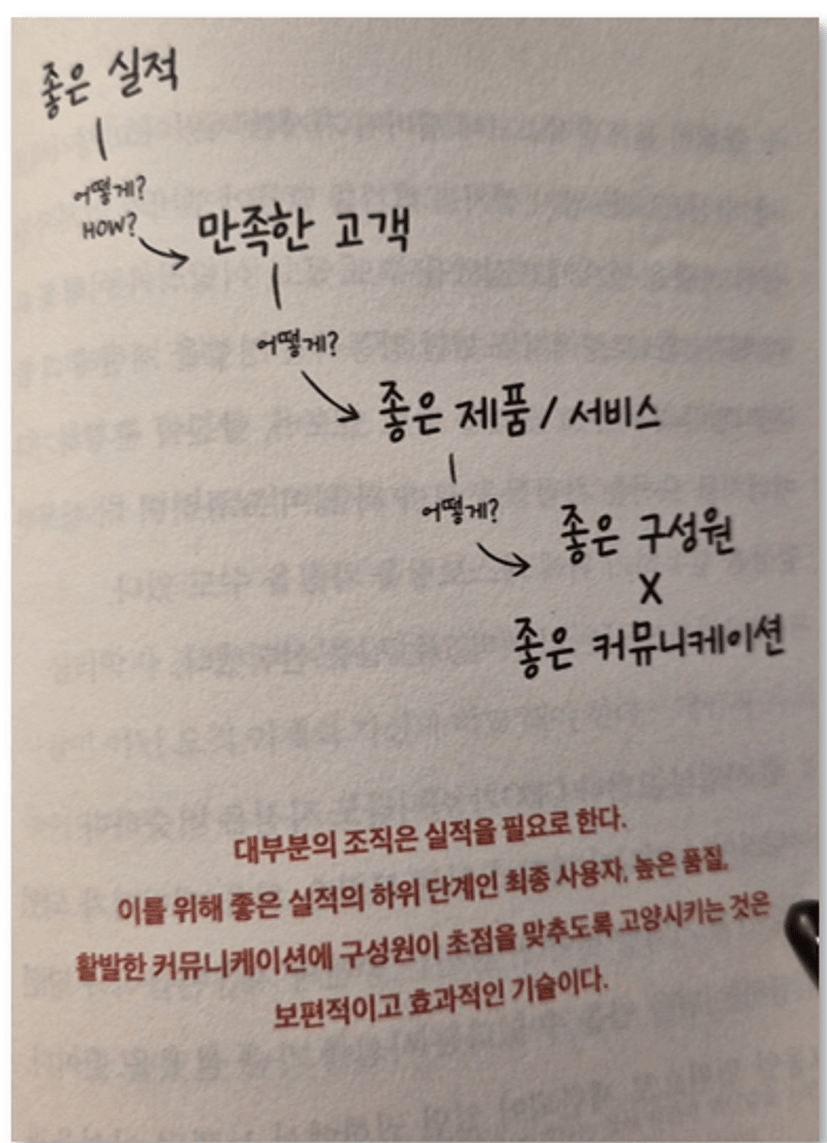 좋은 실적
어떻게?
HOW?
만족한 고객
어떻게?
좋은 제품 / 서비스
어떻게?
좋은 구성원
X
좋은 커뮤니케이션
대부분의 조직은 실적을 필요로 한다.
이를 위해 좋은 실적의 하위 단계인 최종 사용자, 높은 품질,
활발한 커뮤니케이션에 구성원이 초점을 맞추도록 고양시키는 것은
보편적이고 효과적인 기술이다.